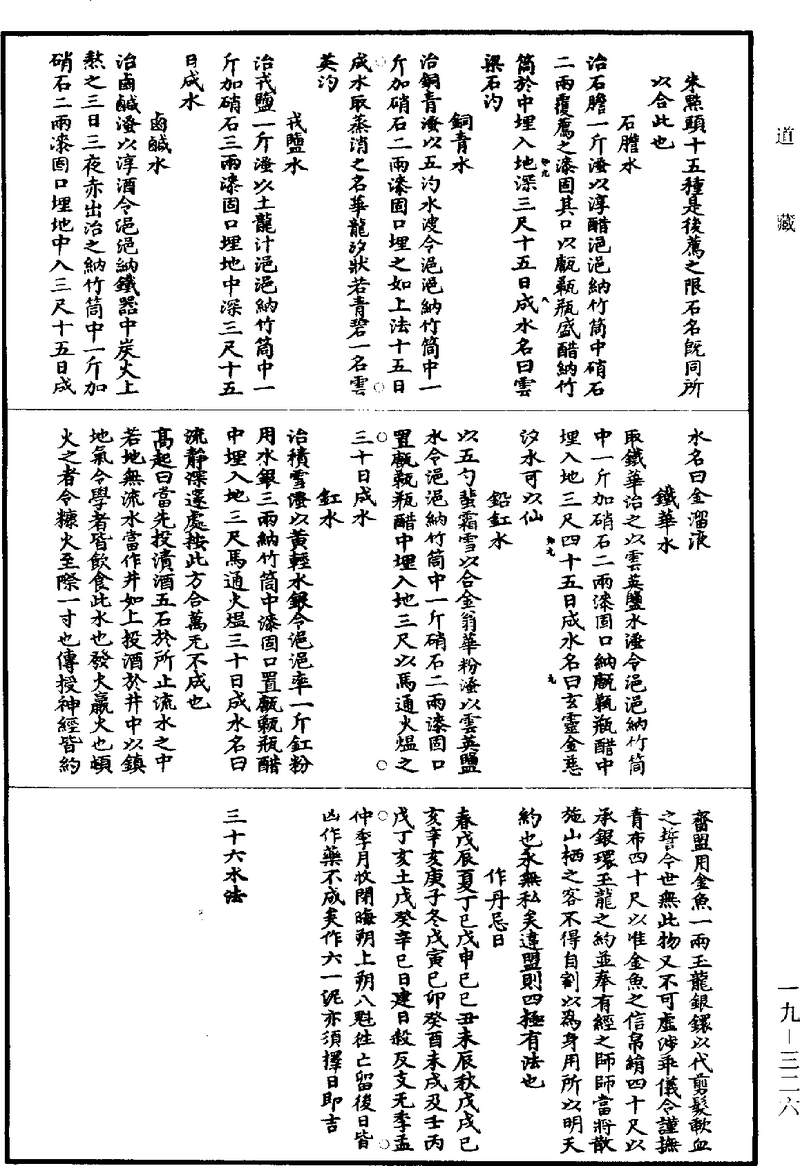 道藏
朱點頭十五種是後薦之限石名既同所
以合此也
石膽水
治石膽一斤溲以淳醋浥浥納竹筒中硝石
二兩覆薦之漆固其口以甂甌瓶盛醋納竹
筒於中埋入地深三尺十五日成水名曰雲
梁石汋
銅青水
治銅青溲以五汋水渡令浥浥納竹筒中一
斤加硝石二兩漆固口埋之如上法十五日
成水取蒸消之名華龍汐狀若青碧一名雲
英汋
戎鹽水
治戎鹽一斤溲以土龍汁浥浥納竹筒中一
斤加硝石三兩漆固口埋地中深三尺十五
日成水
鹵鹹水
治鹵鹹溲以淳酒令浥浥納鐵器中炭火上
熬之三日三夜赤出治之納竹筒中一斤加
硝石二兩漆固口埋地中入三尺十五日成
水名曰金溜液
鐵華水
取鐵華治之以雲英鹽水溲令浥浥納竹筒
中一斤加硝石二兩漆固口納甂甌瓶醋中
埋入地三尺四十五日成水名曰玄靈金慈
汐水可以仙
鉛釭水
以五勺蜚霜雪以合金翁華粉溲以雲英鹽
水令浥浥納竹筒中一斤硝石二兩漆固口
置甂甌瓶醋中埋入地三尺以馬通火熅之
三十日成水
釭水
治積雪溲以黃輕水銀令浥浥率一斤釭粉
用水銀三兩納竹筒中漆固口置甂甌瓶醋
中埋入地三尺馬通火熅三十日成水名曰
流靜深邃處按此方合萬无不成也
高起曰當先投漬酒五石於所止流水之中
若地無流水當作井如上投酒於井中以鎮
地氣令學者皆飲食此水也發火蠃火也頓
火之者令糠火至際一寸也傳授神經皆約
齋盟用金魚一兩玉龍銀鐶以代剪髮歃血
之誓今世無此物又不可虛涉乖儀令謹撫
青布四十尺以准金魚之信帛絹四十尺以
承銀環玉龍之約並奉有經之師師當將散
施山栖之客不得自割以為身用所以明天
約也永無私矣違盟則四極有法也
作丹忌日
春戊辰夏丁巳戊申巳巳丑未辰秋戊戌巳
亥辛亥庚子冬戊寅巳卯癸酉未戌及壬丙
戊丁亥土戊癸辛巳日建日殺反支天季孟
仲季月收閉晦朔上朔八魁往亡留後日皆
凶作藥不成矣作六一泥亦須擇日即吉
三十六水法
一九-三二六